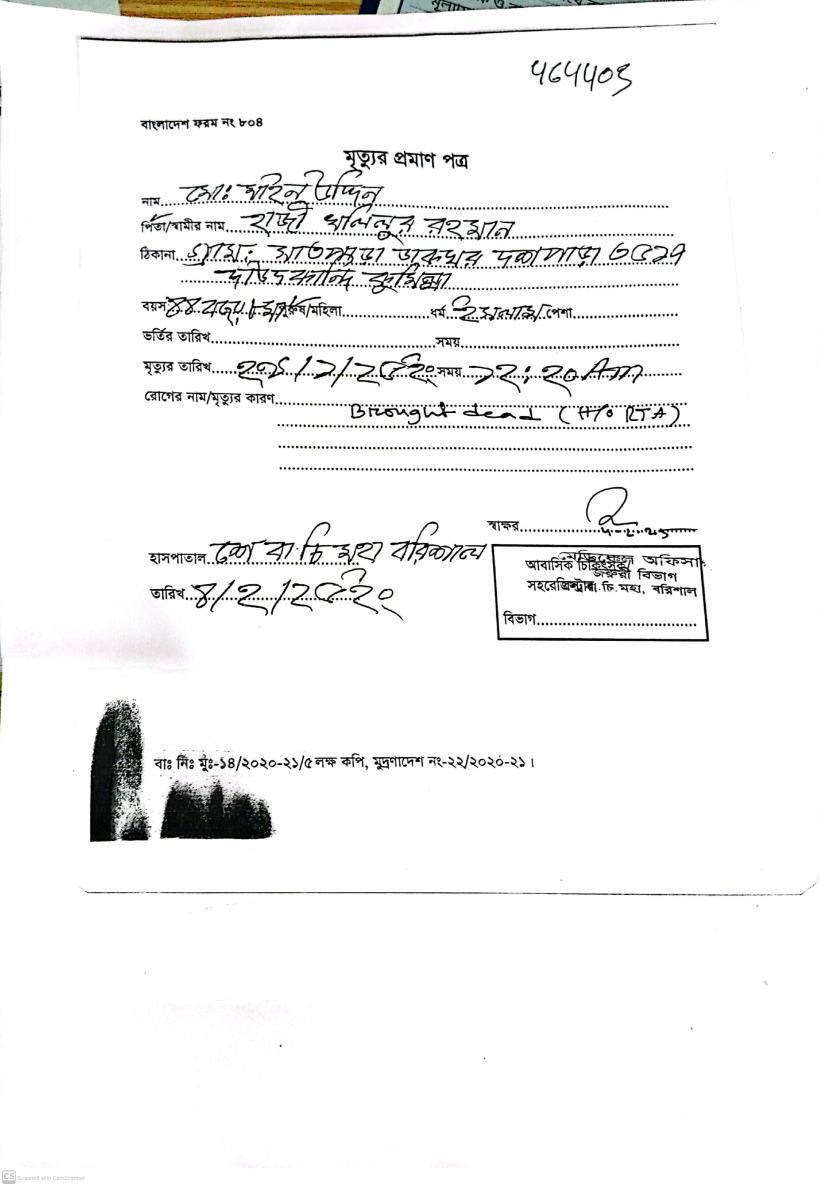 বাংলাদেশ ফরম নং ৮০৪
মৃত্যুর প্রমাণ পত্র
নাম মোঃ মাইন উদ্দিন
পিতা/স্বামীর নাম হাজী খলিলুর রহমান
ঠিকানা গ্রামঃ ডাকঘর
দাউদকান্দি কুমিল্লা
বয়স ৪৪ পুরুষ/মহিলা ধর্ম ইসলাম পেশা
ভর্তির তারিখ সময়
মৃত্যুর তারিখ সময় ১২:২০ Am
রোগের নাম/মৃত্যুর কারণ
Brought dead (H/O RTA)
স্বাক্ষর
হাসপাতাল শে বা চি মহা বরিশাল
তারিখ
মেডিকেল অফিসার
আবাসিক চিকিৎসক/
জরুরী বিভাগ
সহরেজিস্ট্রার বা.চি.মহা, বরিশাল
বিভাগ
বাঃ নিঃ মুঃ-১৪/২০২০-২১/৫ লক্ষ কপি, মুদ্রণাদেশ নং-২২/২০২০-২১।
CS Scanned with CamScanner